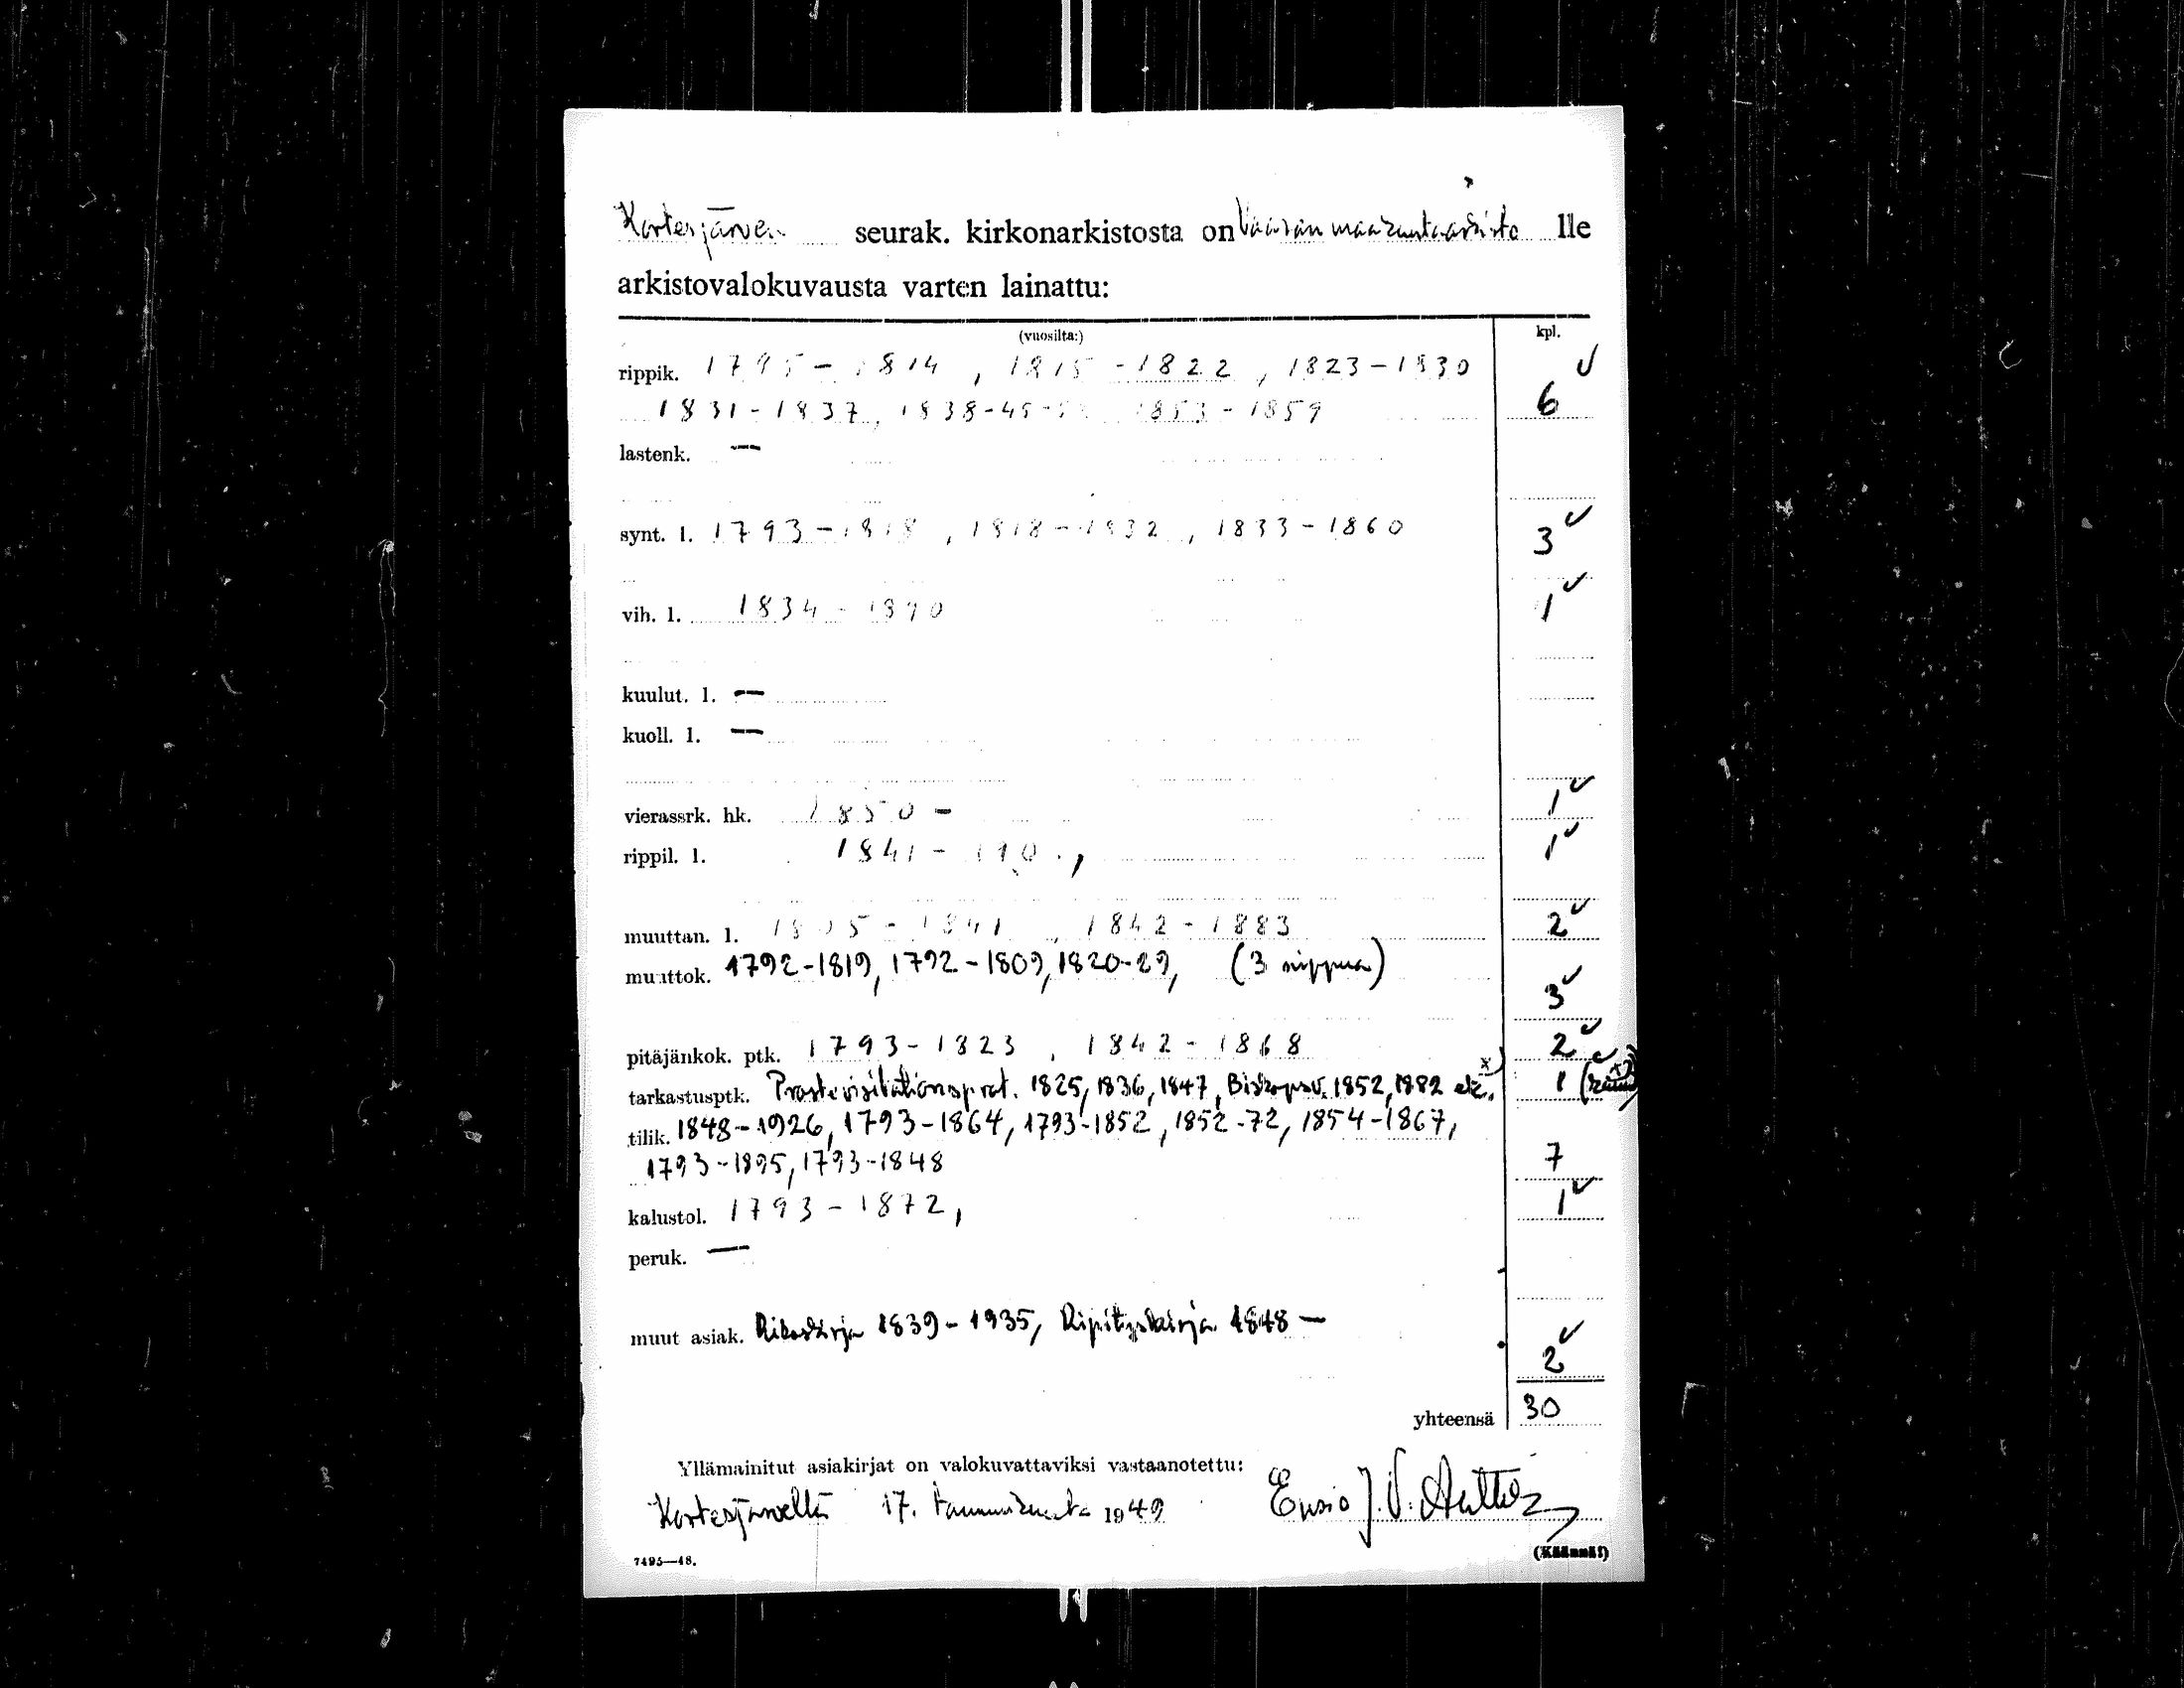 Kortesjärven seurak. kirkonarkistosta on Vaasan maakuntaarkisto lle
arkistovalokuvausta varten lainattu:
(vuosilta:) kpl.
rippik. 1795 - 1814, 1815 - 1822, 1823 - 1830
1831 - 1837, 1838-45- 1853 - 1859 6
lastenk. —
synt. l. 1793 - 1818, 1818 - 1832, 1833 - 1860 3
vih. l. 1834 - 1890 1
kuulut. l. —
kuoll. l. —
vierassrk. hk. 1850 - 1
rippil. l. 1841 - 1
muuttan. l. 1805 - 1841, 1842 - 1883 2
muuttok. 1792-1819, 1792-1809, 1820-29, (3 nippua) 3
pitäjänkok. ptk. 1793 - 1823, 1842 - 1868 2
tarkastusptk. Prostevisitationsprot. 1825, 1836, 1847, Biskopsv. 1852, 1882 etc. x) 1
tilik. 1848-1926, 1793-1864, 1793-1852, 1852-72, 1854-1867,
1793-1895, 1793-1848 7
kalustol. 1793 - 1872, 1
peruk. —
muut asiak. Rikoskirja 1839-1935, Ripityskirja 1848 — 2
yhteensä 30
Yllämainitut asiakirjat on valokuvattaviksi vastaanotettu:
Kortesjärvellä 17. tammikuuta 1949 Ensio J. V.
7495—48. (Käännä!)